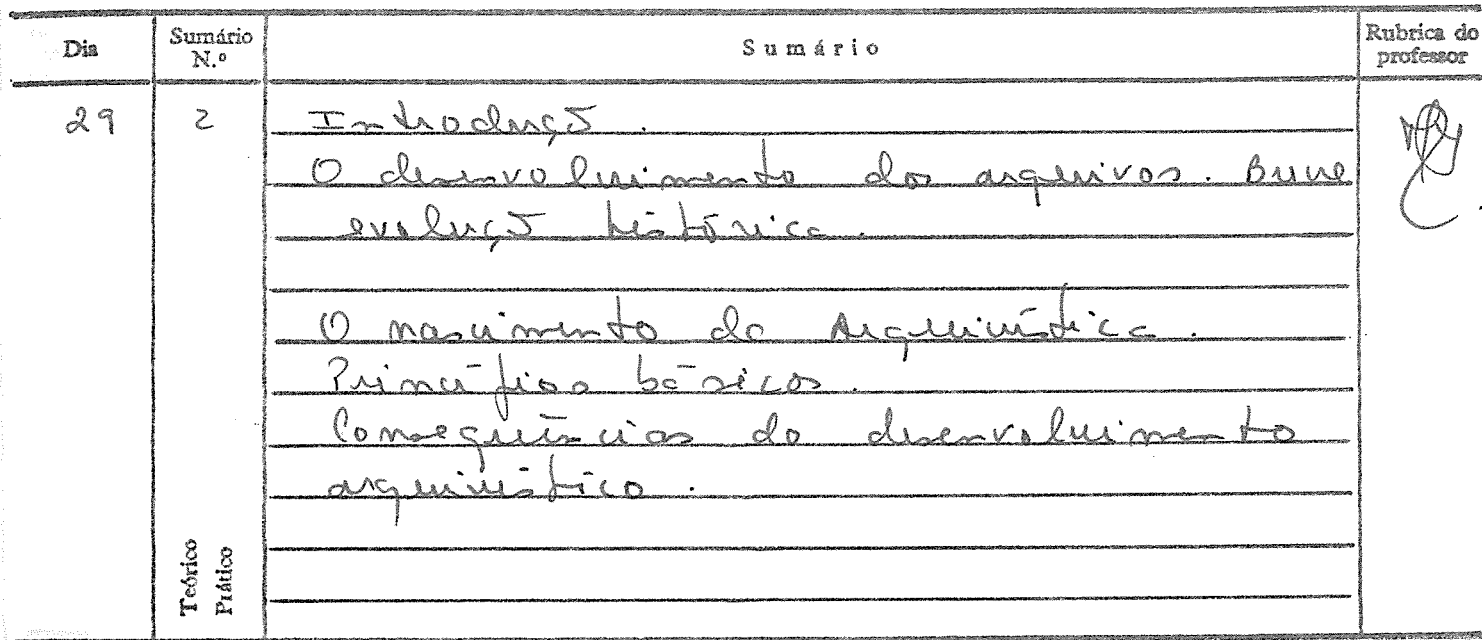 Dia Sumário N.º Sumário Rubrica do professor
29 2 Introdução.
O desenvolvimento dos arquivos. Breve
evolução histórica.
O nascimento da Arquivística.
Princípios básicos.
Consequências do desenvolvimento
arquivístico.
Teórico
Prático